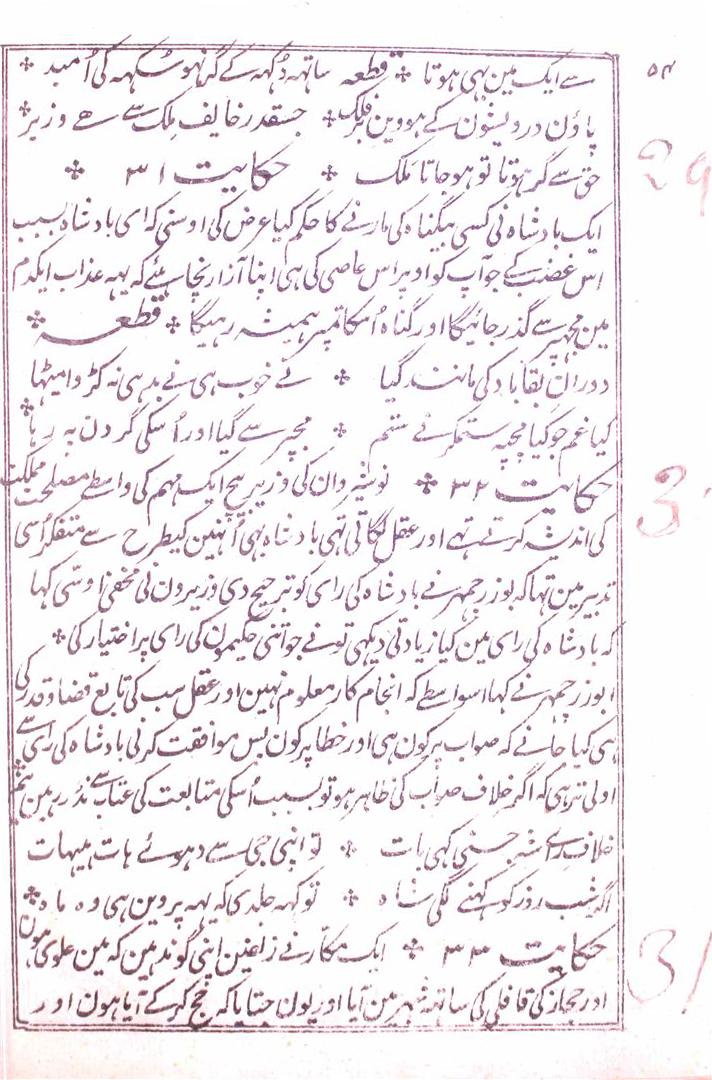 ۵۴
سے ایک مین بہی ہوتا ❊ قطعہ ساتھہ دُکہہ کے گر نہو سُکہہ کی اُمید ❊
پاؤن درویشون کے ہووین بر فلک ❊ جسقدر خایف مَلِک سے ہے وزیر ❊
حق سے گر ہوتا تو ہو جاتا مَلَک ❊ حکایت ۳۱ ❊
ایک بادشاہ نی کسی بیگناہ کی مارنے کا حکم کیا عرض کی اوسنی کہ ای بادشاہ بسبب
اس غضب کے جو آپ کو اوپر اس عاصی کی ہی اپنا آزار نچاہئے کہ یہہ عذاب ایکدم
مین مجہپر سے گذر جائیگا اور گناہ اُسکا تمپر ہمیشہ رہیگا ❊ قطعہ ❊
دورانِ بقا باد کی مانند گیا ❊ نے خوب ہی نے بد ہی نہ کڑوا میٹہا
کیا غم جو کیا مجہپہ ستمگر نے ستم ❊ مجہپر سے گیا اور اُسکی گردن پہ رہا ❊
حکایت ۳۲ ❊ نوشیروان کی وزیر بیچ ایک مہم کی واسطے مصلحت مملکت
کی اندیشہ کرتے تہے اور عقل لگاتی تہی بادشاہ بہی اُنہین کیطرح سے متفکر اُسی
تدبیر مین تہا کہ بوزرجمہر نے بادشاہ کی رای کو ترجیح دی وزیرون نی مخفی اوسی کہا
کہ بادشاہ کی رای مین کیا زیادتی دیکہی تونے جو اتنی حکیمون کی رای پر اختیار کی ❊
ابوزرجمہر نے کہا اسواسطے کہ انجام کار معلوم نہین اور عقل سب کی تابع قضا و قدر کی
ہی کیا جانے کہ صواب پر کون ہی اور خطا پر کون پس موافقت کرنی بادشاہ کی رای سے
اولی تر ہی کہ اگر خلاف صواب کی ظاہر ہو تو بسبب اُسکی متابعت کی عتاب سے نڈر رہین ہم
خلاف رای شہ جسنی کہی بات ❊ تو اپنی جی سے دہوئے ہات ہیہات
اگر شب روز کو کہنے لگی شاہ ❊ تو کہہ جلدی کہ یہہ پروین ہی وہ ماہ ❊
حکایت ۳۳ ❊ ایک مکّار نے زلفین اپنی گوندہین کہ مین علوی ہون
اور حجاز کی قافلی کی ساتہہ شہر مین آیا اور یون جتایا کہ حج کر کے آیا ہون اور
29
3
31